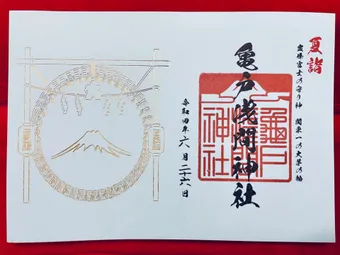 夏詣
霊峰富士の守り神 関東一の大茅の輪
亀戸浅間神社
龜戸浅間神社
令和四年六月二十六日